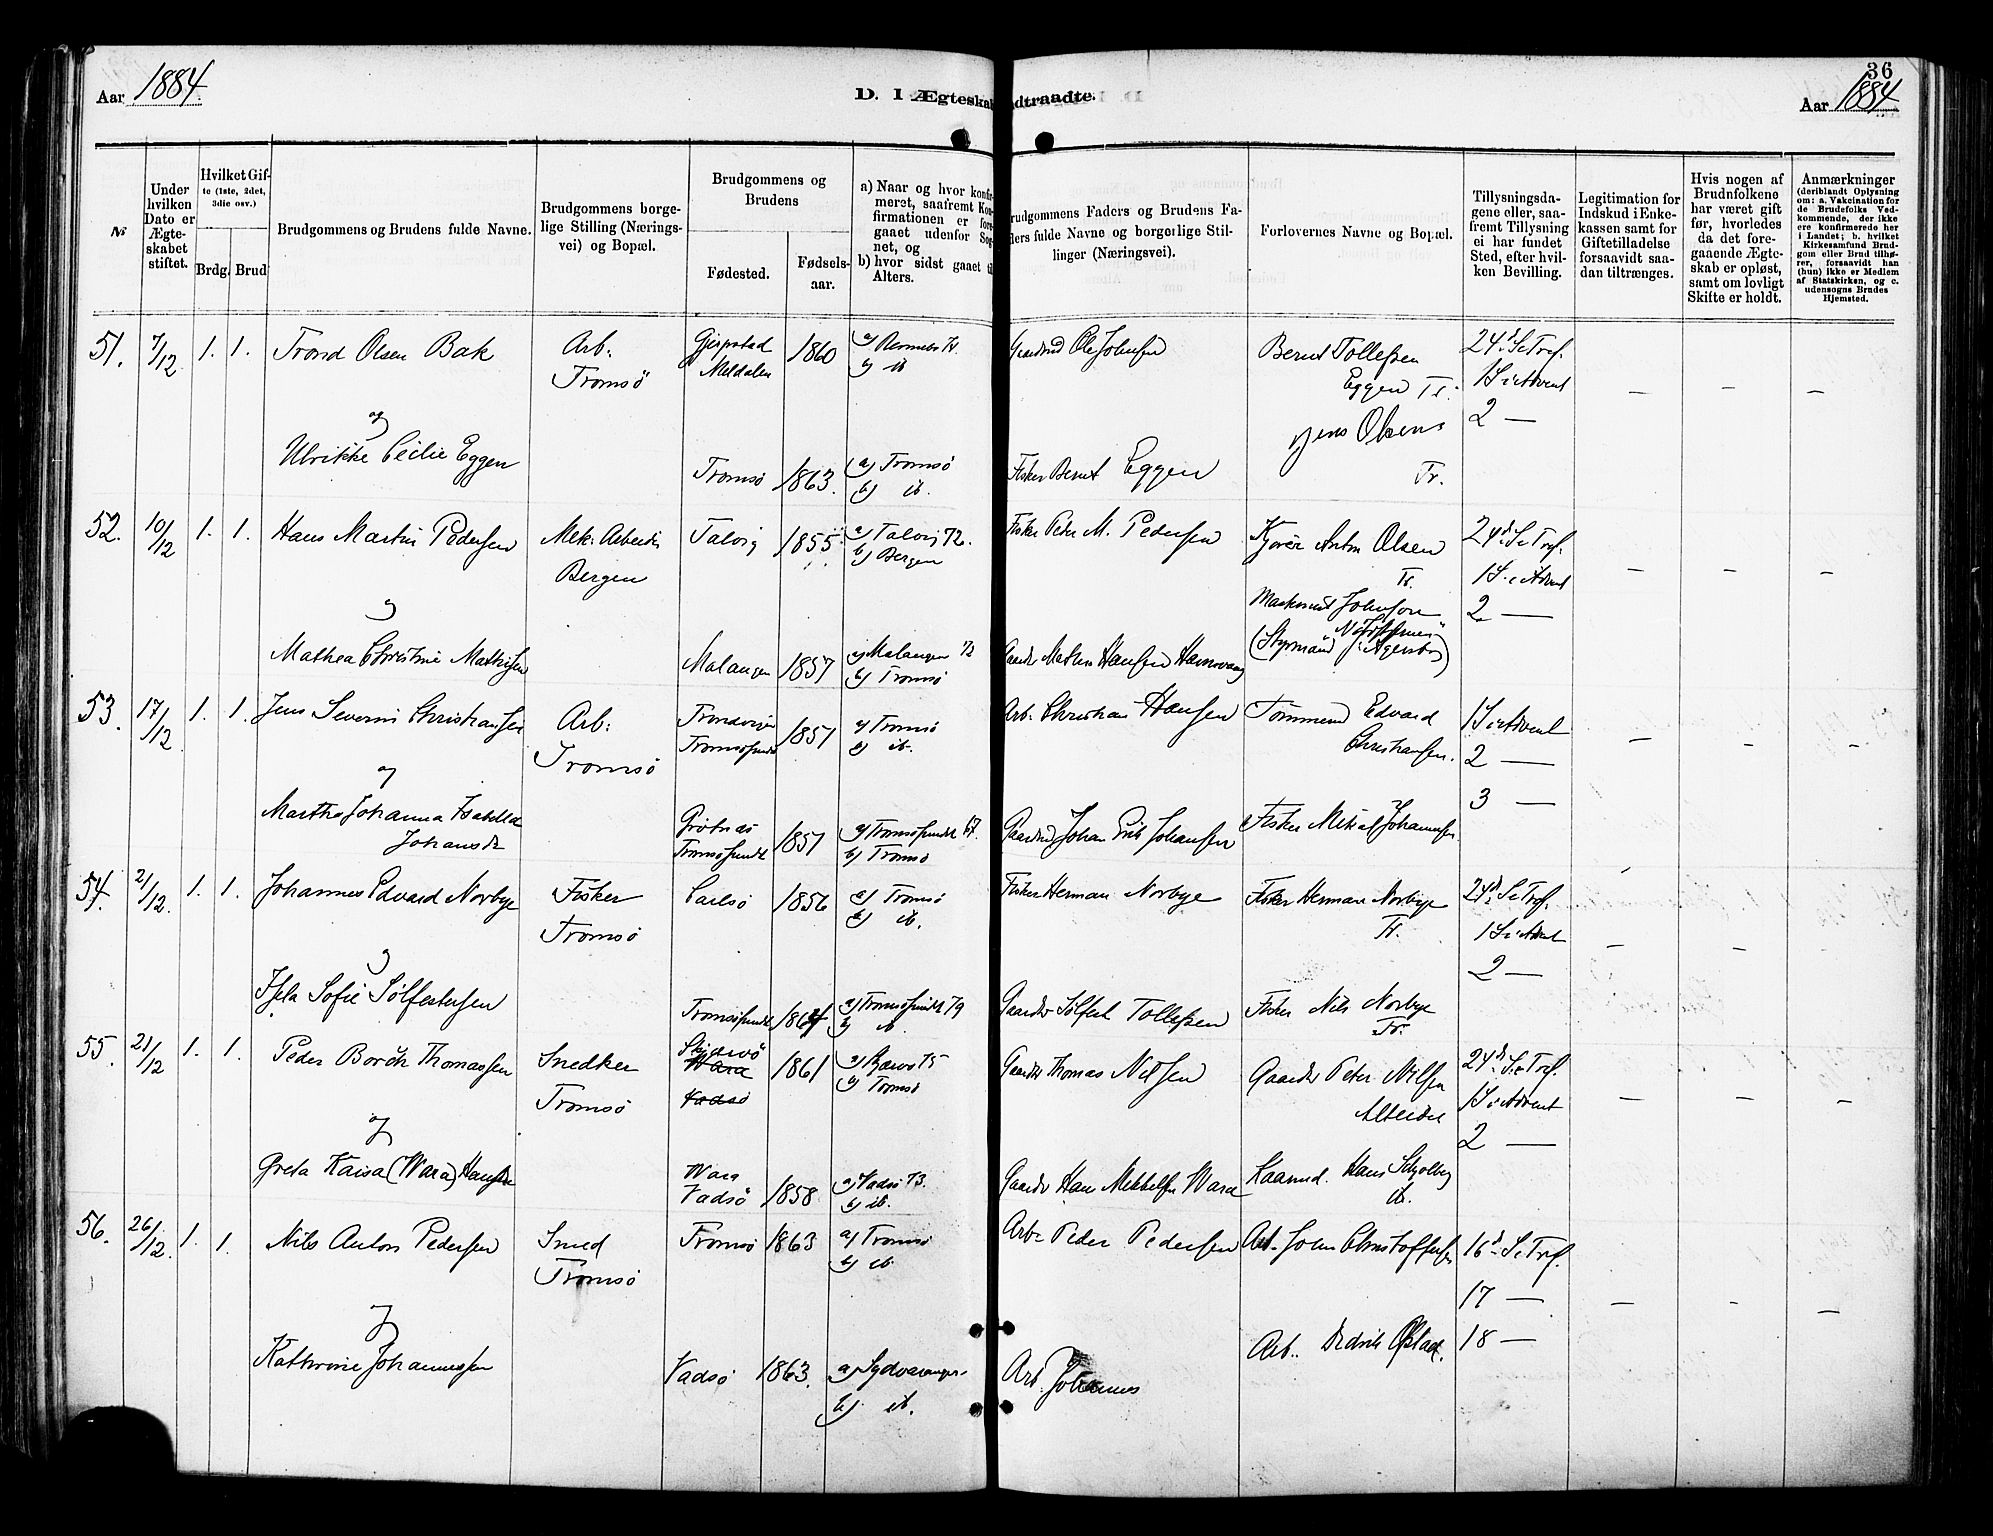 36
Aar 1884.
D. I Ægteskab Indtraadte.
Aar 1884
№
Under hvilken Dato er Ægteskabet stiftet.
Hvilket Gifte (1ste, 2det, 3die osv.)
Brdg.
Brud
Brudgommens og Brudens fulde Navne.
Brudgommens borgelige Stilling (Næringsvei) og Bopæl.
Brudgommens og Brudens
Fødested.
Fødselsaar.
a) Naar og hvor konfirmeret, saafremt Konfirmationen er foregaaet udenfor
b) hvor sidst gaaet til Alters.
Brudgommens Faders og Brudens Faders fulde Navne og borgerlige Stillinger (Næringsvei).
Forlovernes Navne og Bopæl.
Tillysningsdagene eller, saafremt Tillysning ei har fundet Sted, efter hvilken Bevilling.
Legitimation for Indskud i Enkekassen samt for Giftetilladelse forsaavidt saadan tiltrænges.
Hvis nogen af Brudnfolkene har været gift før, hvorledes da det foregaaende Ægteskab er opløst, samt om lovligt Skifte er holdt.
Anmærkninger
(deriblandt Oplysning om: a. Vakcination for de Brudefolks Vedkommende, der ikke ere konfirmerede her i Landet; b. hvilket Kirkesamfund Brudgom eller Brud tilhører, forsaavidt han (hun) ikke er Medlem af Statskirken, og c. udensogns Brudes Hjemsted.
51. 7/12 1. 1. Trond Olsen Bak Arb: Tromsö Meldalen 1860 b) ib Gaardmd Ole Johnsen Bernt Tollefsen Eggen Tr. 24d S. e Tref.
1 S i Advent
2 —
og
Ulrikke Cecilie Eggen Tromsö 1863. a) Tromsö b) ib. Fisker Bernt Eggen Jens Olsen Tr.
52. 10/12 1. 1. Hans Martin Pedersen Mek: Arbeider Bergen Talvig 1855 a) Talvig 72. b) Bergen Fisker Peter M. Pedersen Anton Olsen Tr. 24d S. e Tref.
1 S. i Advent
2 —
og
Mathea Christine Mathisen Malangen 1857 a) Malangen b) Tromsö Gaardbr Mathis Hansen Johnson (Styrmand
53. 17/12 1. 1. Jens Severin Christiansen Arb: Tromsö Tromsösundet 1857 a) Tromsö b) ib. Arb. Christian Hansen Tömmermd Edvard Christiansen. 1 S i Advent
2 —
3 —
og
Marthe Johanna Isabella Johansdr Grötnæs Tromsösundet 1857 a) Tromsösundet 67. b) Tromsö Gaardmd Johan Erik Johansen Fisker Mikal Johannesen
54. 21/12. 1. 1. Johannes Edvard Norbye Fisker Tromsö Carlsö 1856 a) Tromsö b) ib. Fisker Herman Norbye Fisker Herman Norbye Tr. 24d S. e Tref.
1 S i Advent
2 —
og
Sofie Sölfestersen Tromsösundet 1864 a) Tromsösundet 79 b) ib. Gaardbr Sölfest Tollefsen Fisker Nils Norbye Tr.
55. 21/12 1. 1. Peder Borch Thomassen Snedker Tromsö Skjervö Wara Vadsö 1861 b) Tromsö Gaardbr Thomas Nilsen Gaardbr Peter Nilsen Alteidet 24d S. e Tref.
1 S i Advent
2 —
og
Greta Kaisa (Wara) Hansdr Wara Vadsö 1858 a) Vadsö 73. b) ib. Gaardbr Hans Mikkelsen Wara Hans ib.
56. 26/12. 1. 1. Nils Anton Pedersen Smed Tromsö Tromsö 1863 a) Tromsö b) ib. Arb. Peder Pedersen Arb. John Christoffersen 16d S. e Tref.
17 —
18 —
og
Kathrine Johannessen Vadsö 1863. a) Sydvaranger b) ib. Arb. Johannes Arb.. Didrik Opstad.